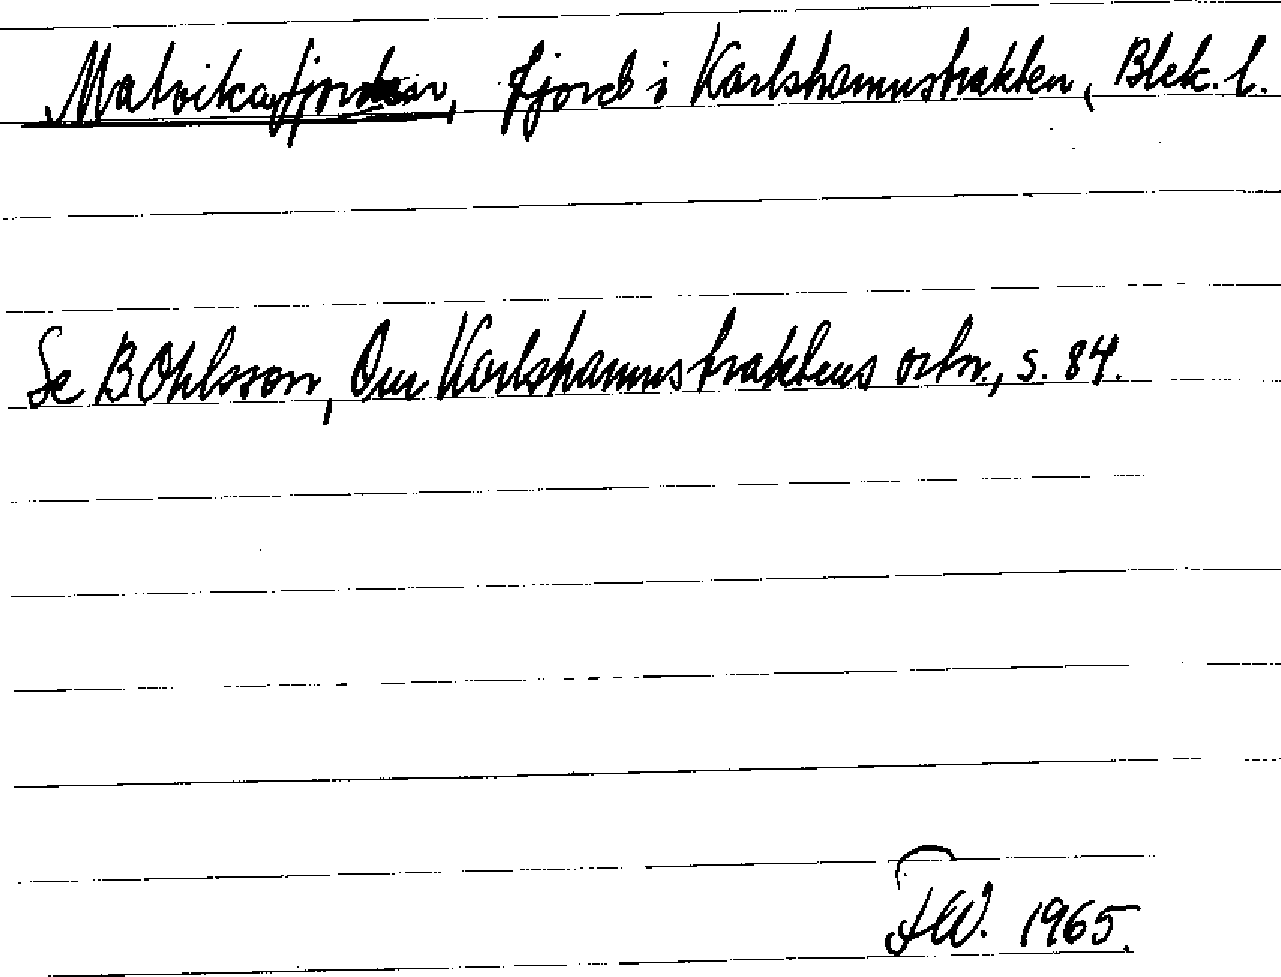 Matvikafjorden, fjord i Karlshamnstrakten, Blek. l.
Se B. Ohlsson, Om Karlshamnstraktens ortn., s. 84.
FW. 1965.